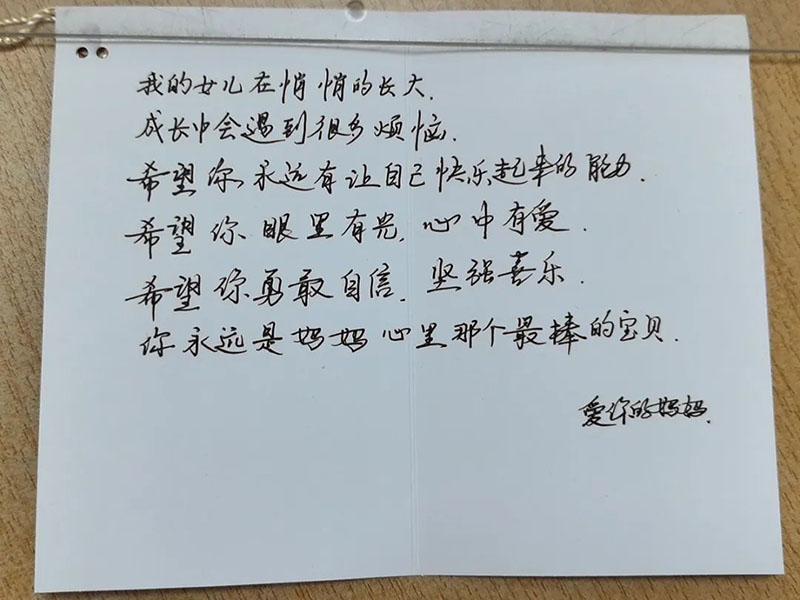 我的女儿在悄悄的长大.
成长中会遇到很多烦恼.
希望你永远有让自己快乐起来的能力.
希望你眼里有光,心中有爱.
希望你勇敢自信,坚强喜乐.
你永远是妈妈心里那个最棒的宝贝.
爱你的妈妈.